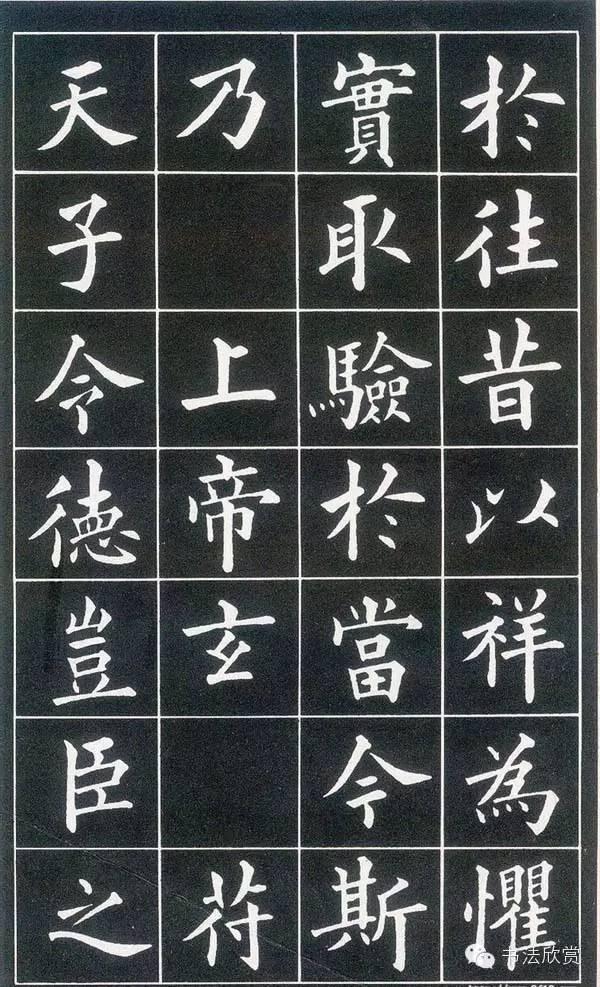 於往昔以祥為懼
實取驗於當今斯
乃上帝玄符
天子令德豈臣之
书法欣赏